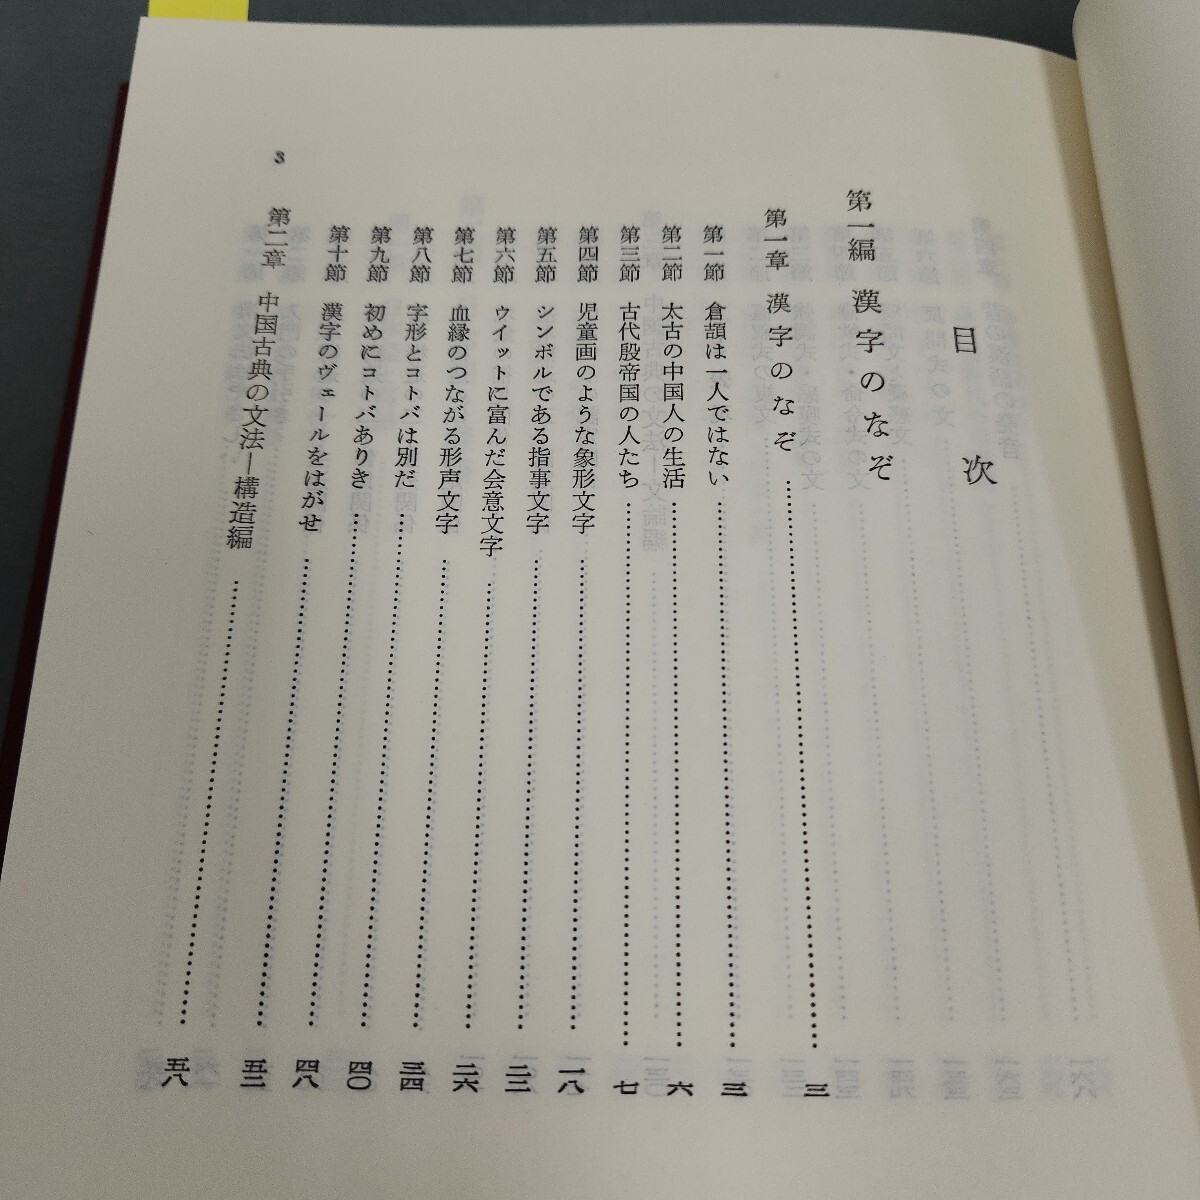 目次
第一編 漢字のなぞ
第一章 漢字のなぞ……三
第一節 倉頡は一人ではない……三
第二節 太古の中国人の生活……六
第三節 古代殷帝国の人たち……七
第四節 児童画のような象形文字……一八
第五節 シンボルである指事文字……二二
第六節 ウイットに富んだ会意文字……二六
第七節 血縁のつながる形声文字……三四
第八節 字形とコトバは別だ……四〇
第九節 初めにコトバありき……四八
第十節 漢字のヴェールをはがせ……五二
第二章 中国古典の文法―構造編……五八
3